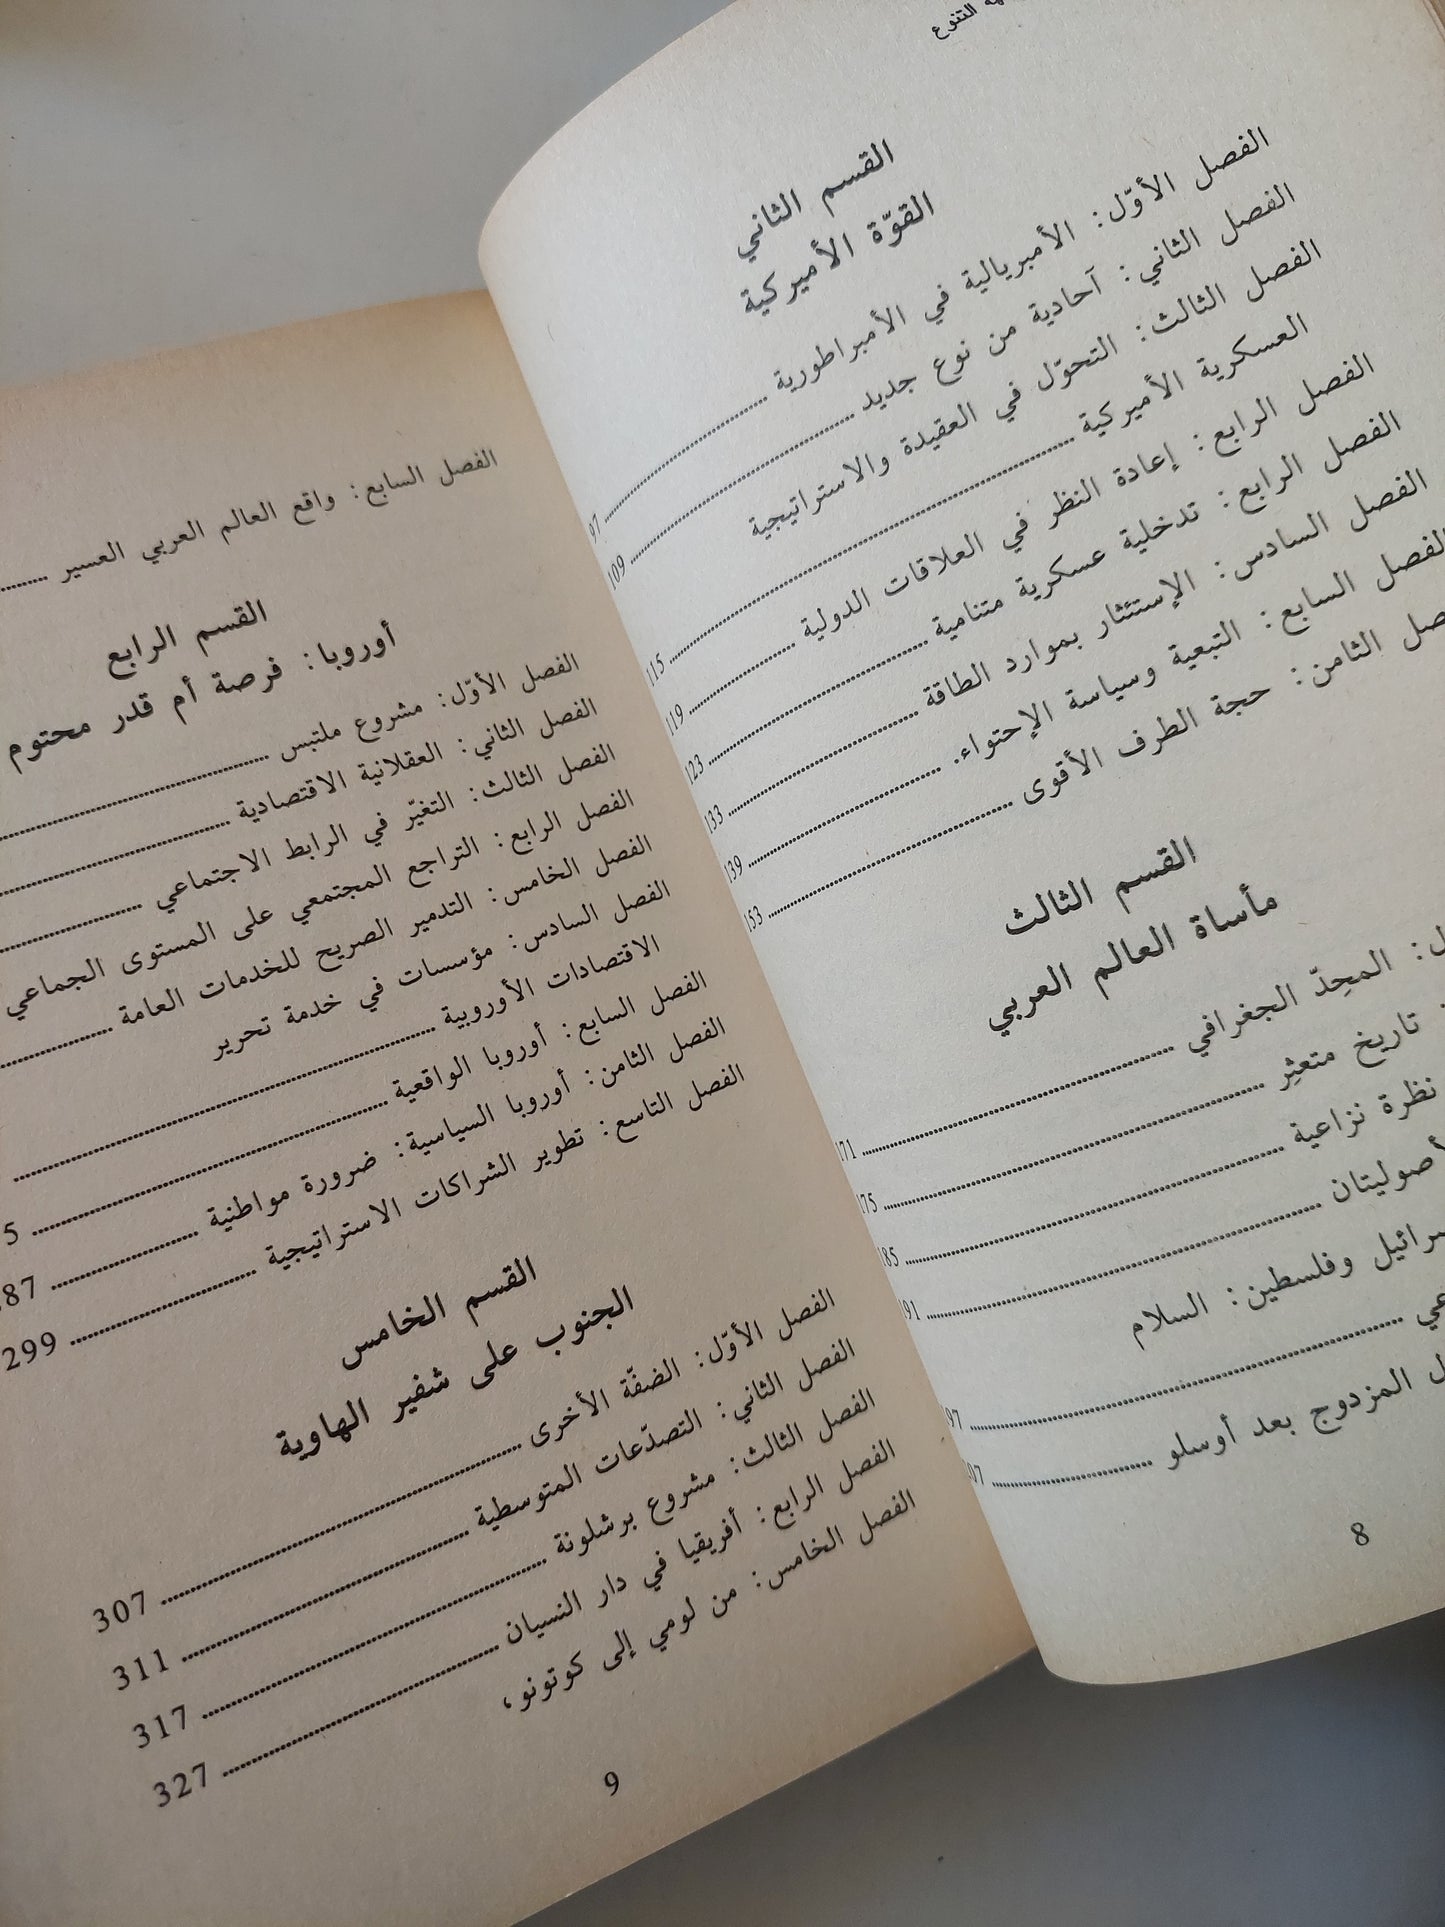 التنوع
القسم الثاني
القوّة الأميركية
الفصل الأوّل: الأمبريالية في الأمبراطورية ........ 97
الفصل الثاني: آحادية من نوع جديد ........ 109
الفصل الثالث: التحوّل في العقيدة والاستراتيجية
العسكرية الأميركية ........ 115
الفصل الرابع: إعادة النظر في العلاقات الدولية ........ 119
الفصل الرابع: تدخلية عسكرية متنامية ........ 123
الفصل السادس: الإستئثار بموارد الطاقة ........ 133
الفصل السابع: التبعية وسياسة الإحتواء. ........ 139
الثامن: حجة الطرف الأقوى ........ 153
القسم الثالث
مأساة العالم العربي
المحِدّ الجغرافي ........ 171
تاريخ متعثِر ........ 175
نظرة نزاعية ........ 185
أصوليتان ........ 191
وفلسطين: السلام
........ 97
المزدوج بعد أوسلو ........ 07
8
الفصل السابع: واقع العالم العربي العسير ........
القسم الرابع
أوروبا: فرصة أم قدر محتوم
الفصل الأوّل: مشروع ملتبس ........
الفصل الثاني: العقلانية الاقتصادية ........
الفصل الثالث: التغيّر في الرابط الاجتماعي ........
الفصل الرابع: التراجع المجتمعي على المستوى الجماعي
الفصل الخامس: التدمير الصريح للخدمات العامة ........
الفصل السادس: مؤسسات في خدمة تحرير
الاقتصادات الأوروبية ........
الفصل السابع: أوروبا الواقعية ........ 5
الفصل الثامن: أوروبا السياسية: ضرورة مواطنية ........ 87
الفصل التاسع: تطوير الشراكات الاستراتيجية ........ 299
القسم الخامس
الجنوب على شفير الهاوية
الفصل الأوّل: الضفّة الأخرى ........ 307
الفصل الثاني: التصدّعات المتوسطية ........ 311
الفصل الثالث: مشروع برشلونة ........ 317
الفصل الرابع: أفريقيا في دار النسيان ........ 327
الفصل الخامس: من لومي إلى كوتونو،
9